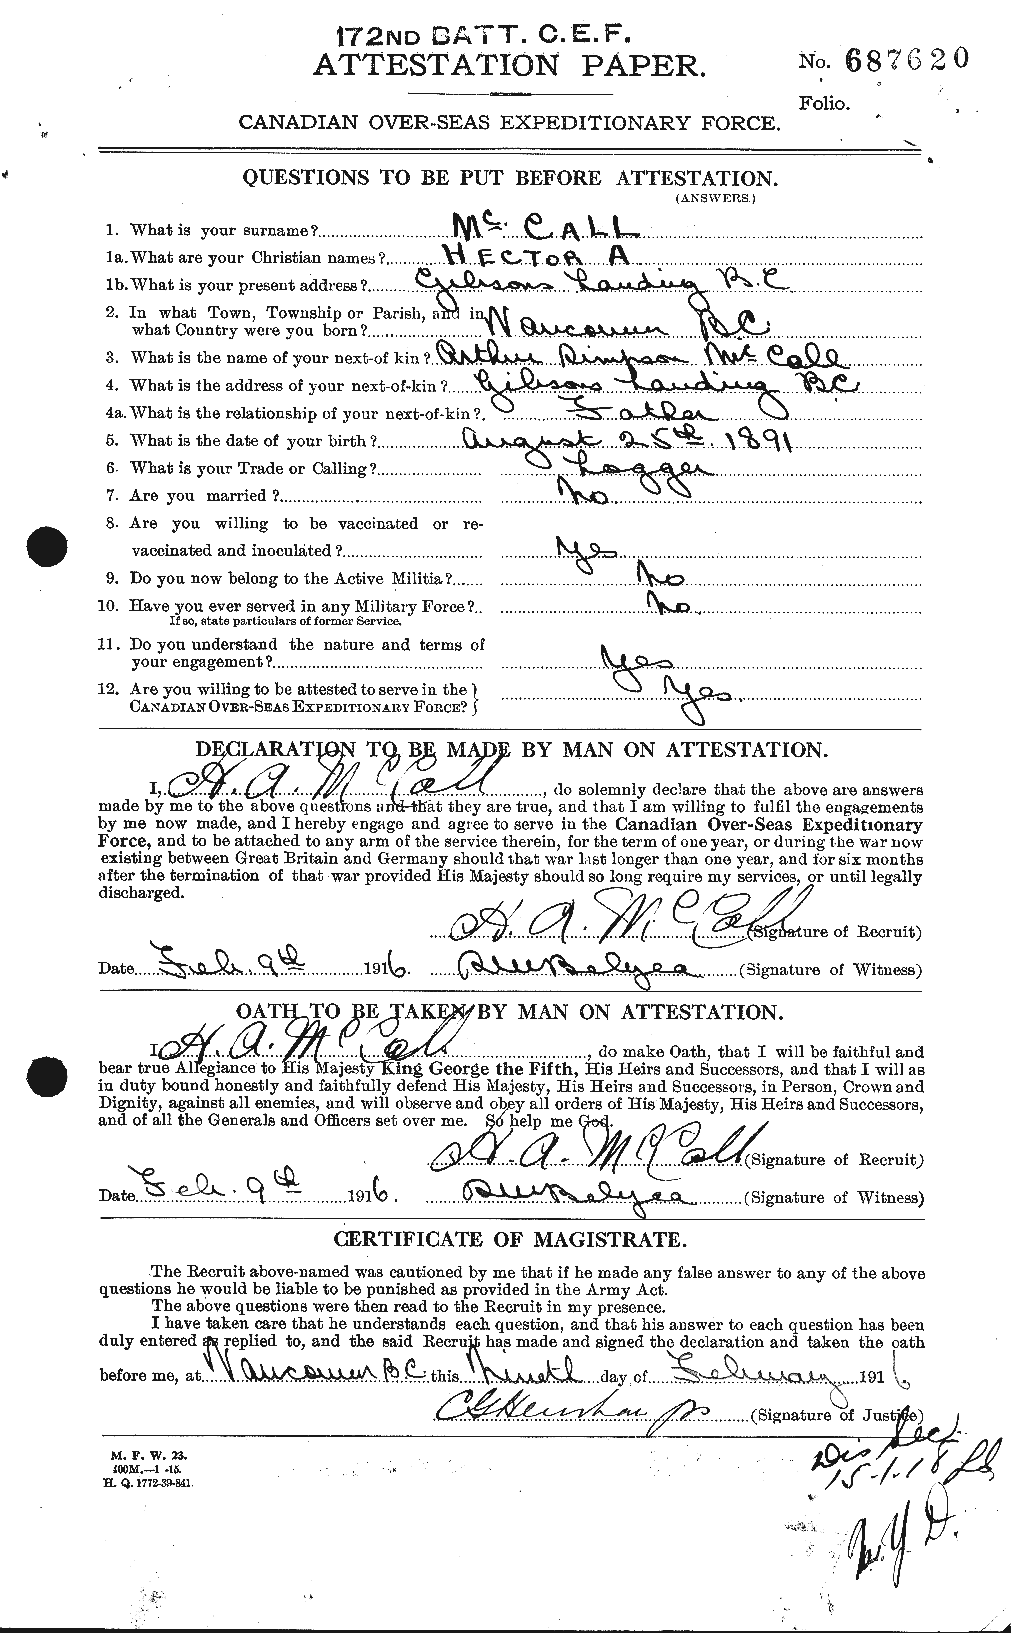 172ND BATT. C.E.F.
ATTESTATION PAPER.
No. 687620
Folio.
CANADIAN OVER-SEAS EXPEDITIONARY FORCE.
QUESTIONS TO BE PUT BEFORE ATTESTATION.
(ANSWERS.)
1. What is your surname? Mc CALL
1a. What are your Christian names? HECTOR A
1b. What is your present address? Gibsons Landing B.C
2. In what Town, Township or Parish, and in
what Country were you born? Vancouver B.C.
3. What is the name of your next-of kin? Arthur Simpson Mc Call
4. What is the address of your next-of-kin? Gibsons Landing B C
4a. What is the relationship of your next-of-kin? Father
5. What is the date of your birth? August 25th. 1891
6. What is your Trade or Calling? Logger
7. Are you married? No
8. Are you willing to be vaccinated or re-
vaccinated and inoculated? Yes
9. Do you now belong to the Active Militia? No
10. Have you ever served in any Military Force? No.
If so, state particulars of former Service.
11. Do you understand the nature and terms of
your engagement? Yes
12. Are you willing to be attested to serve in the } Yes.
CANADIAN OVER-SEAS EXPEDITIONARY FORCE? }
DECLARATION TO BE MADE BY MAN ON ATTESTATION.
I, H. A. McCall, do solemnly declare that the above are answers
made by me to the above questions and that they are true, and that I am willing to fulfil the engagements
by me now made, and I hereby engage and agree to serve in the Canadian Over-Seas Expeditionary
Force, and to be attached to any arm of the service therein, for the term of one year, or during the war now
existing between Great Britain and Germany should that war last longer than one year, and for six months
after the termination of that war provided His Majesty should so long require my services, or until legally
discharged.
H. A. McCall (Signature of Recruit)
Date Feb. 9th 1916. (Signature of Witness)
OATH TO BE TAKEN BY MAN ON ATTESTATION.
I H. A. McCall, do make Oath, that I will be faithful and
bear true Allegiance to His Majesty King George the Fifth, His Heirs and Successors, and that I will as
in duty bound honestly and faithfully defend His Majesty, His Heirs and Successors, in Person, Crown and
Dignity, against all enemies, and will observe and obey all orders of His Majesty, His Heirs and Successors,
and of all the Generals and Officers set over me. So help me God.
H. A. McCall (Signature of Recruit)
Date Feb. 9th 1916. (Signature of Witness)
CERTIFICATE OF MAGISTRATE.
The Recruit above-named was cautioned by me that if he made any false answer to any of the above
questions he would be liable to be punished as provided in the Army Act.
The above questions were then read to the Recruit in my presence.
I have taken care that he understands each question, and that his answer to each question has been
duly entered as replied to, and the said Recruit has made and signed the declaration and taken the oath
before me, at Vancouver B C this Nineth day of February 1916
(Signature of Justice)
M. F. W. 23.
H. Q. 1772-39-841.
Dis
15-1-18